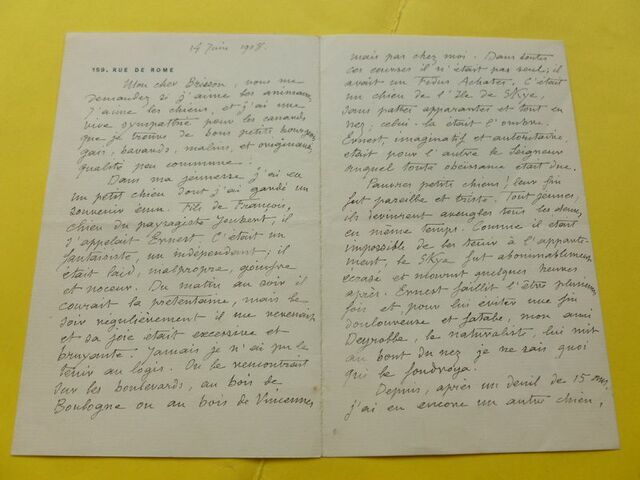 14 Juin 1908.
159, RUE DE ROME
Mon cher Brisson, vous me
demandez si j'aime les animaux,
j'aime les chiens, et j'ai une
vive sympathie pour les canards
que je trouve de bons petits bourgeois,
gais, bavards, malins, et originaux,
qualité peu commune.
Dans ma jeunesse j'ai eu
un petit chien dont j'ai gardé un
souvenir ému. Fils de François,
chien du paysagiste Jeubert, il
s'appelait Ernest. C'était un
fantaisiste, un indépendant; il
était laid, malpropre, goinfre
et noceur. Du matin au soir il
courait la prétentaine, mais le
soir régulièrement il me revenait
et sa joie était excessive et
bruyante. Jamais je n'ai pu le
tenir au logis. On le rencontrait
sur les boulevards, au bois de
Boulogne ou au bois de Vincennes,
mais pas chez moi. Dans toutes
ces courses il n'était pas seul; il
avait un Fidus Achates. C'était
un chien de l'Ile de Skye,
sans pattes apparentes et tout en
nez; celui-là était l'ombre.
Ernest, imaginatif et autoritaire,
était pour l'autre le Seigneur
auquel toute obéissance était due.
Pauvres petits chiens! leur fin
fut pareille et triste. Tout jeunes,
ils devinrent aveugles tous les deux,
en même temps. Comme il était
impossible de les tenir à l'apparte-
ment, le Skye fut abominablement
écrasé et mourut quelques heures
après. Ernest faillit l'être plusieurs
fois et pour lui éviter une fin
douloureuse et fatale, mon ami
Deyrolle, le naturaliste, lui mit
au bout du nez je ne sais quoi
qui le foudroya.
Depuis, après un deuil de 15 ans,
j'ai eu encore un autre chien,